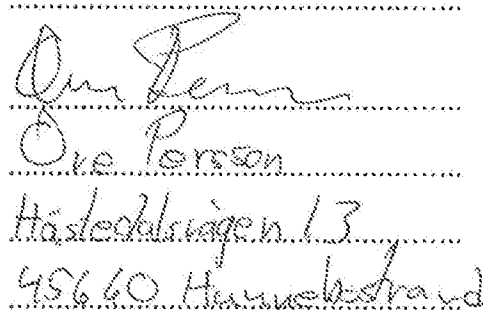 Ove Persson
Ove Persson
Hästedalsvägen 13
45660 Hunnebostrand